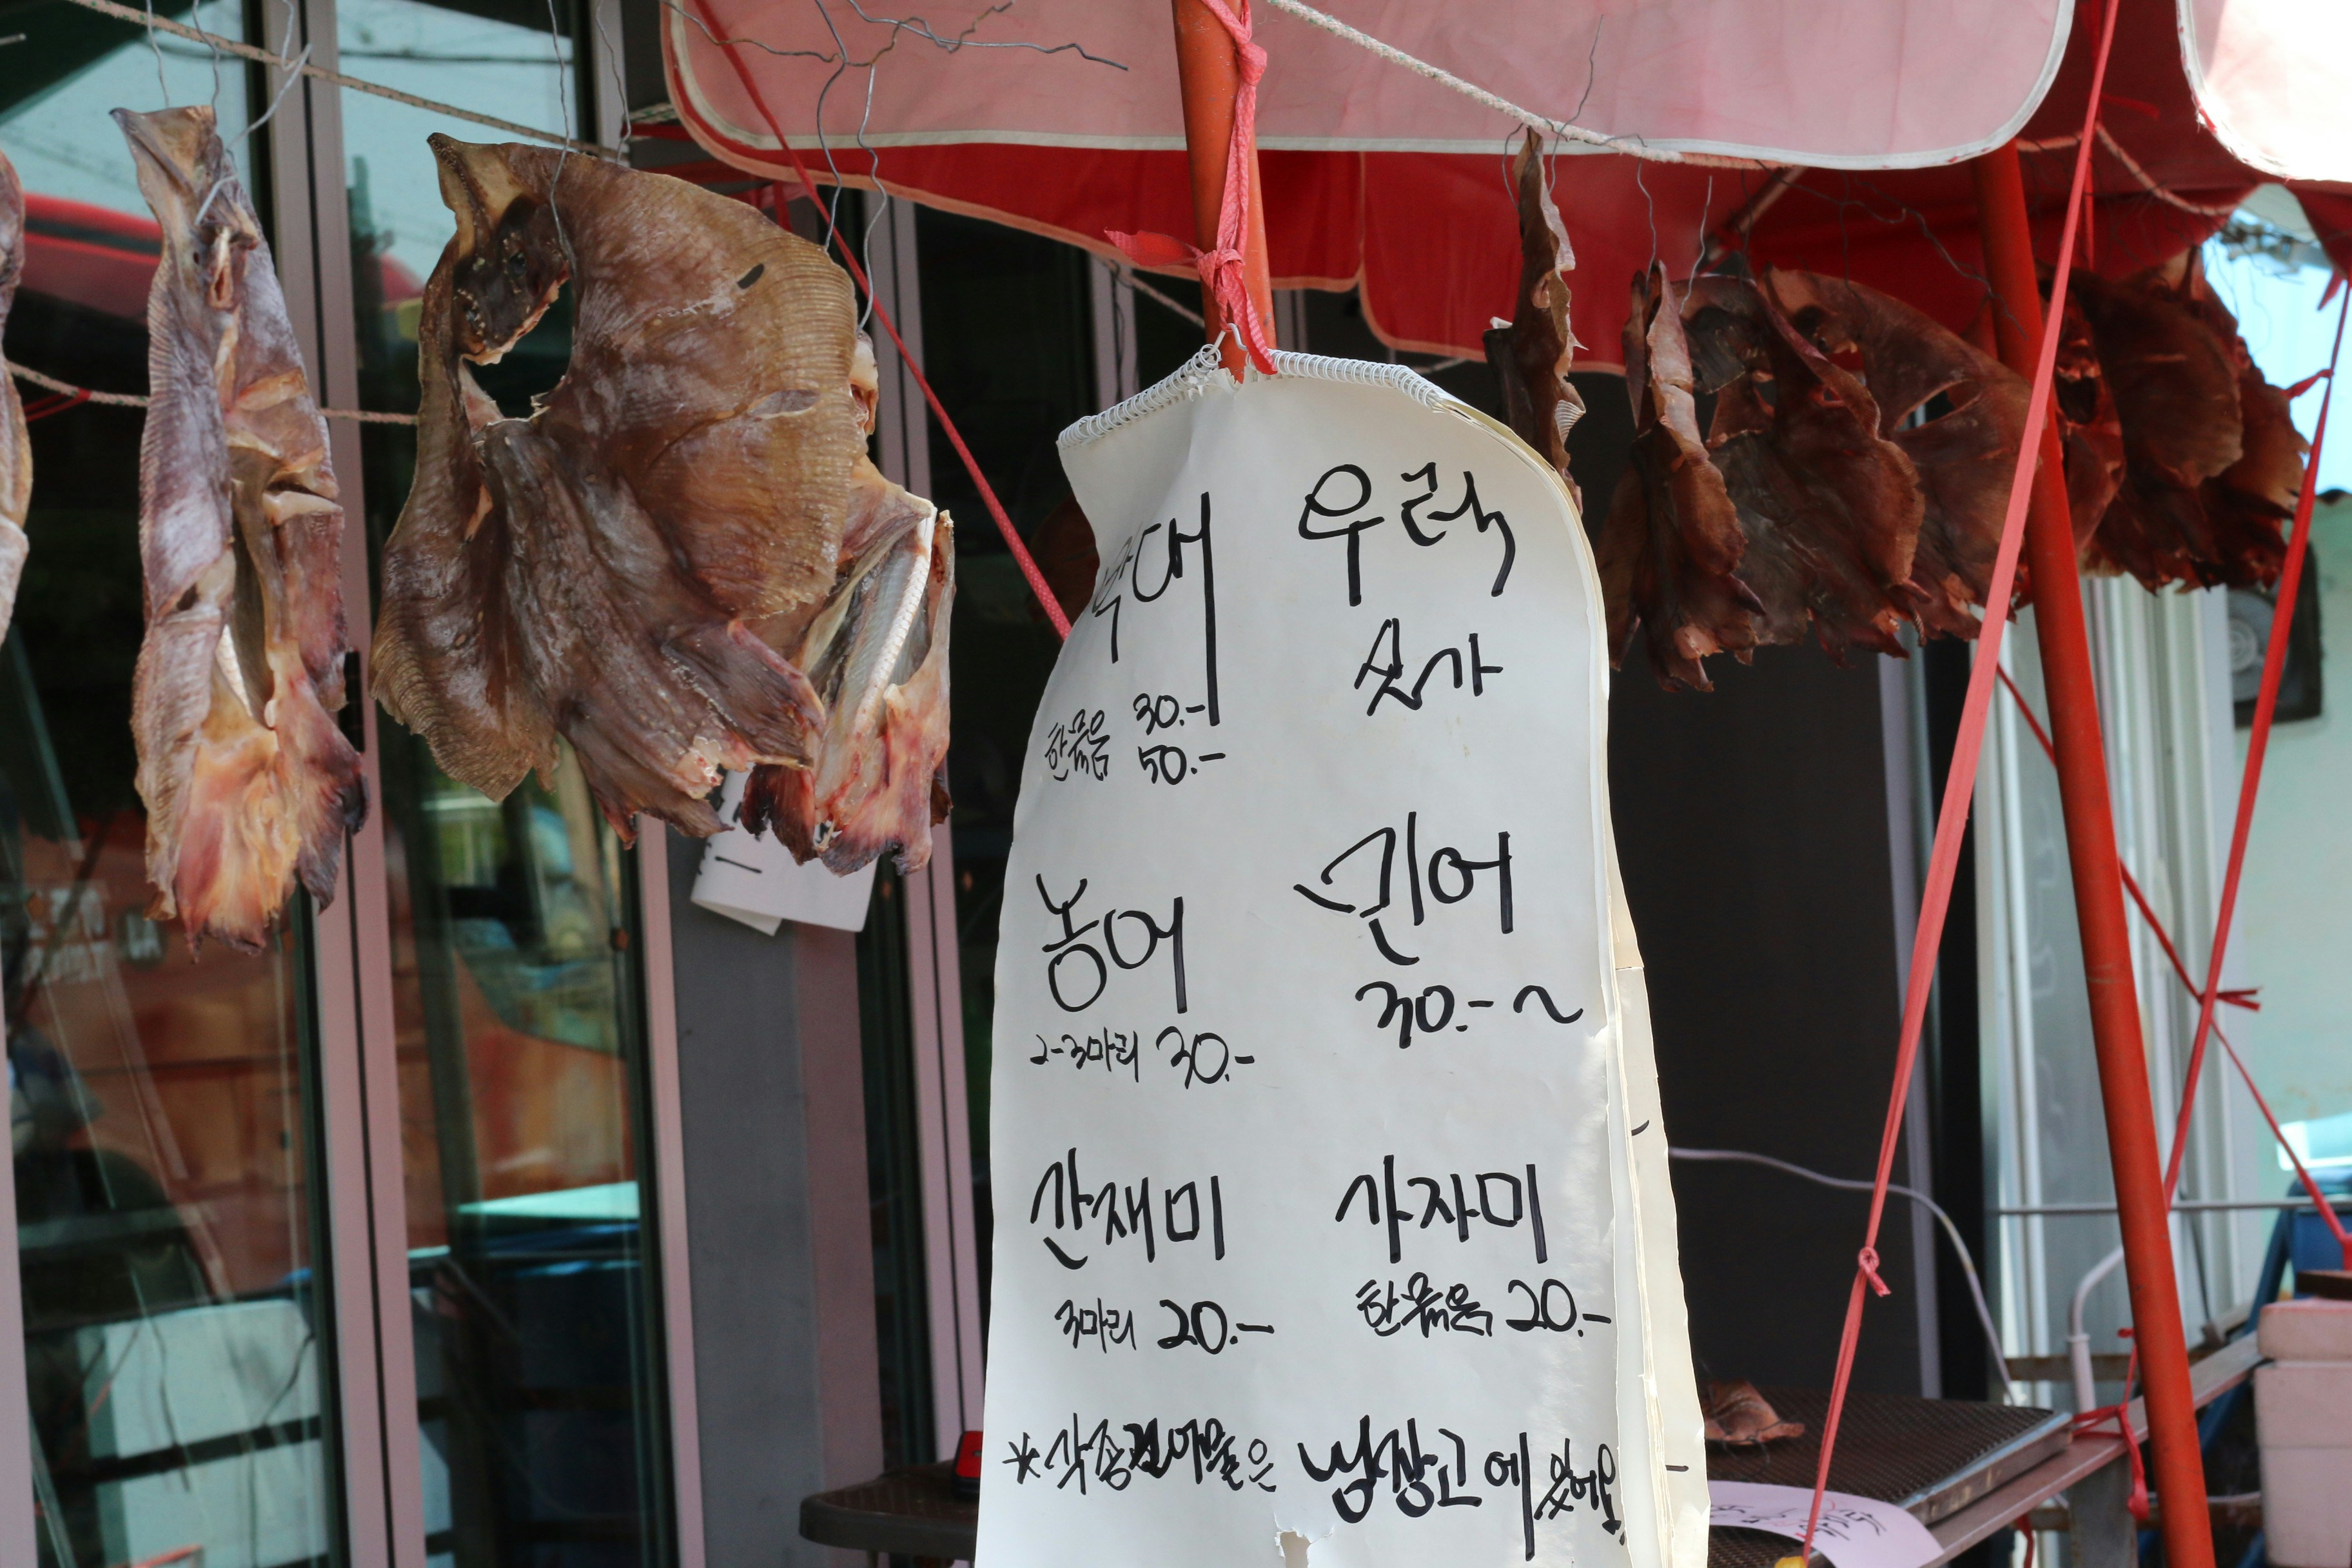 박대
30.-
한묶음 50.-
우럭
싯가
농어
2-3마리 30.-
민어
30.-~
간재미
3마리 20.-
가자미
한묶음 20.-
*각종건어물은 냉장고에 있어요